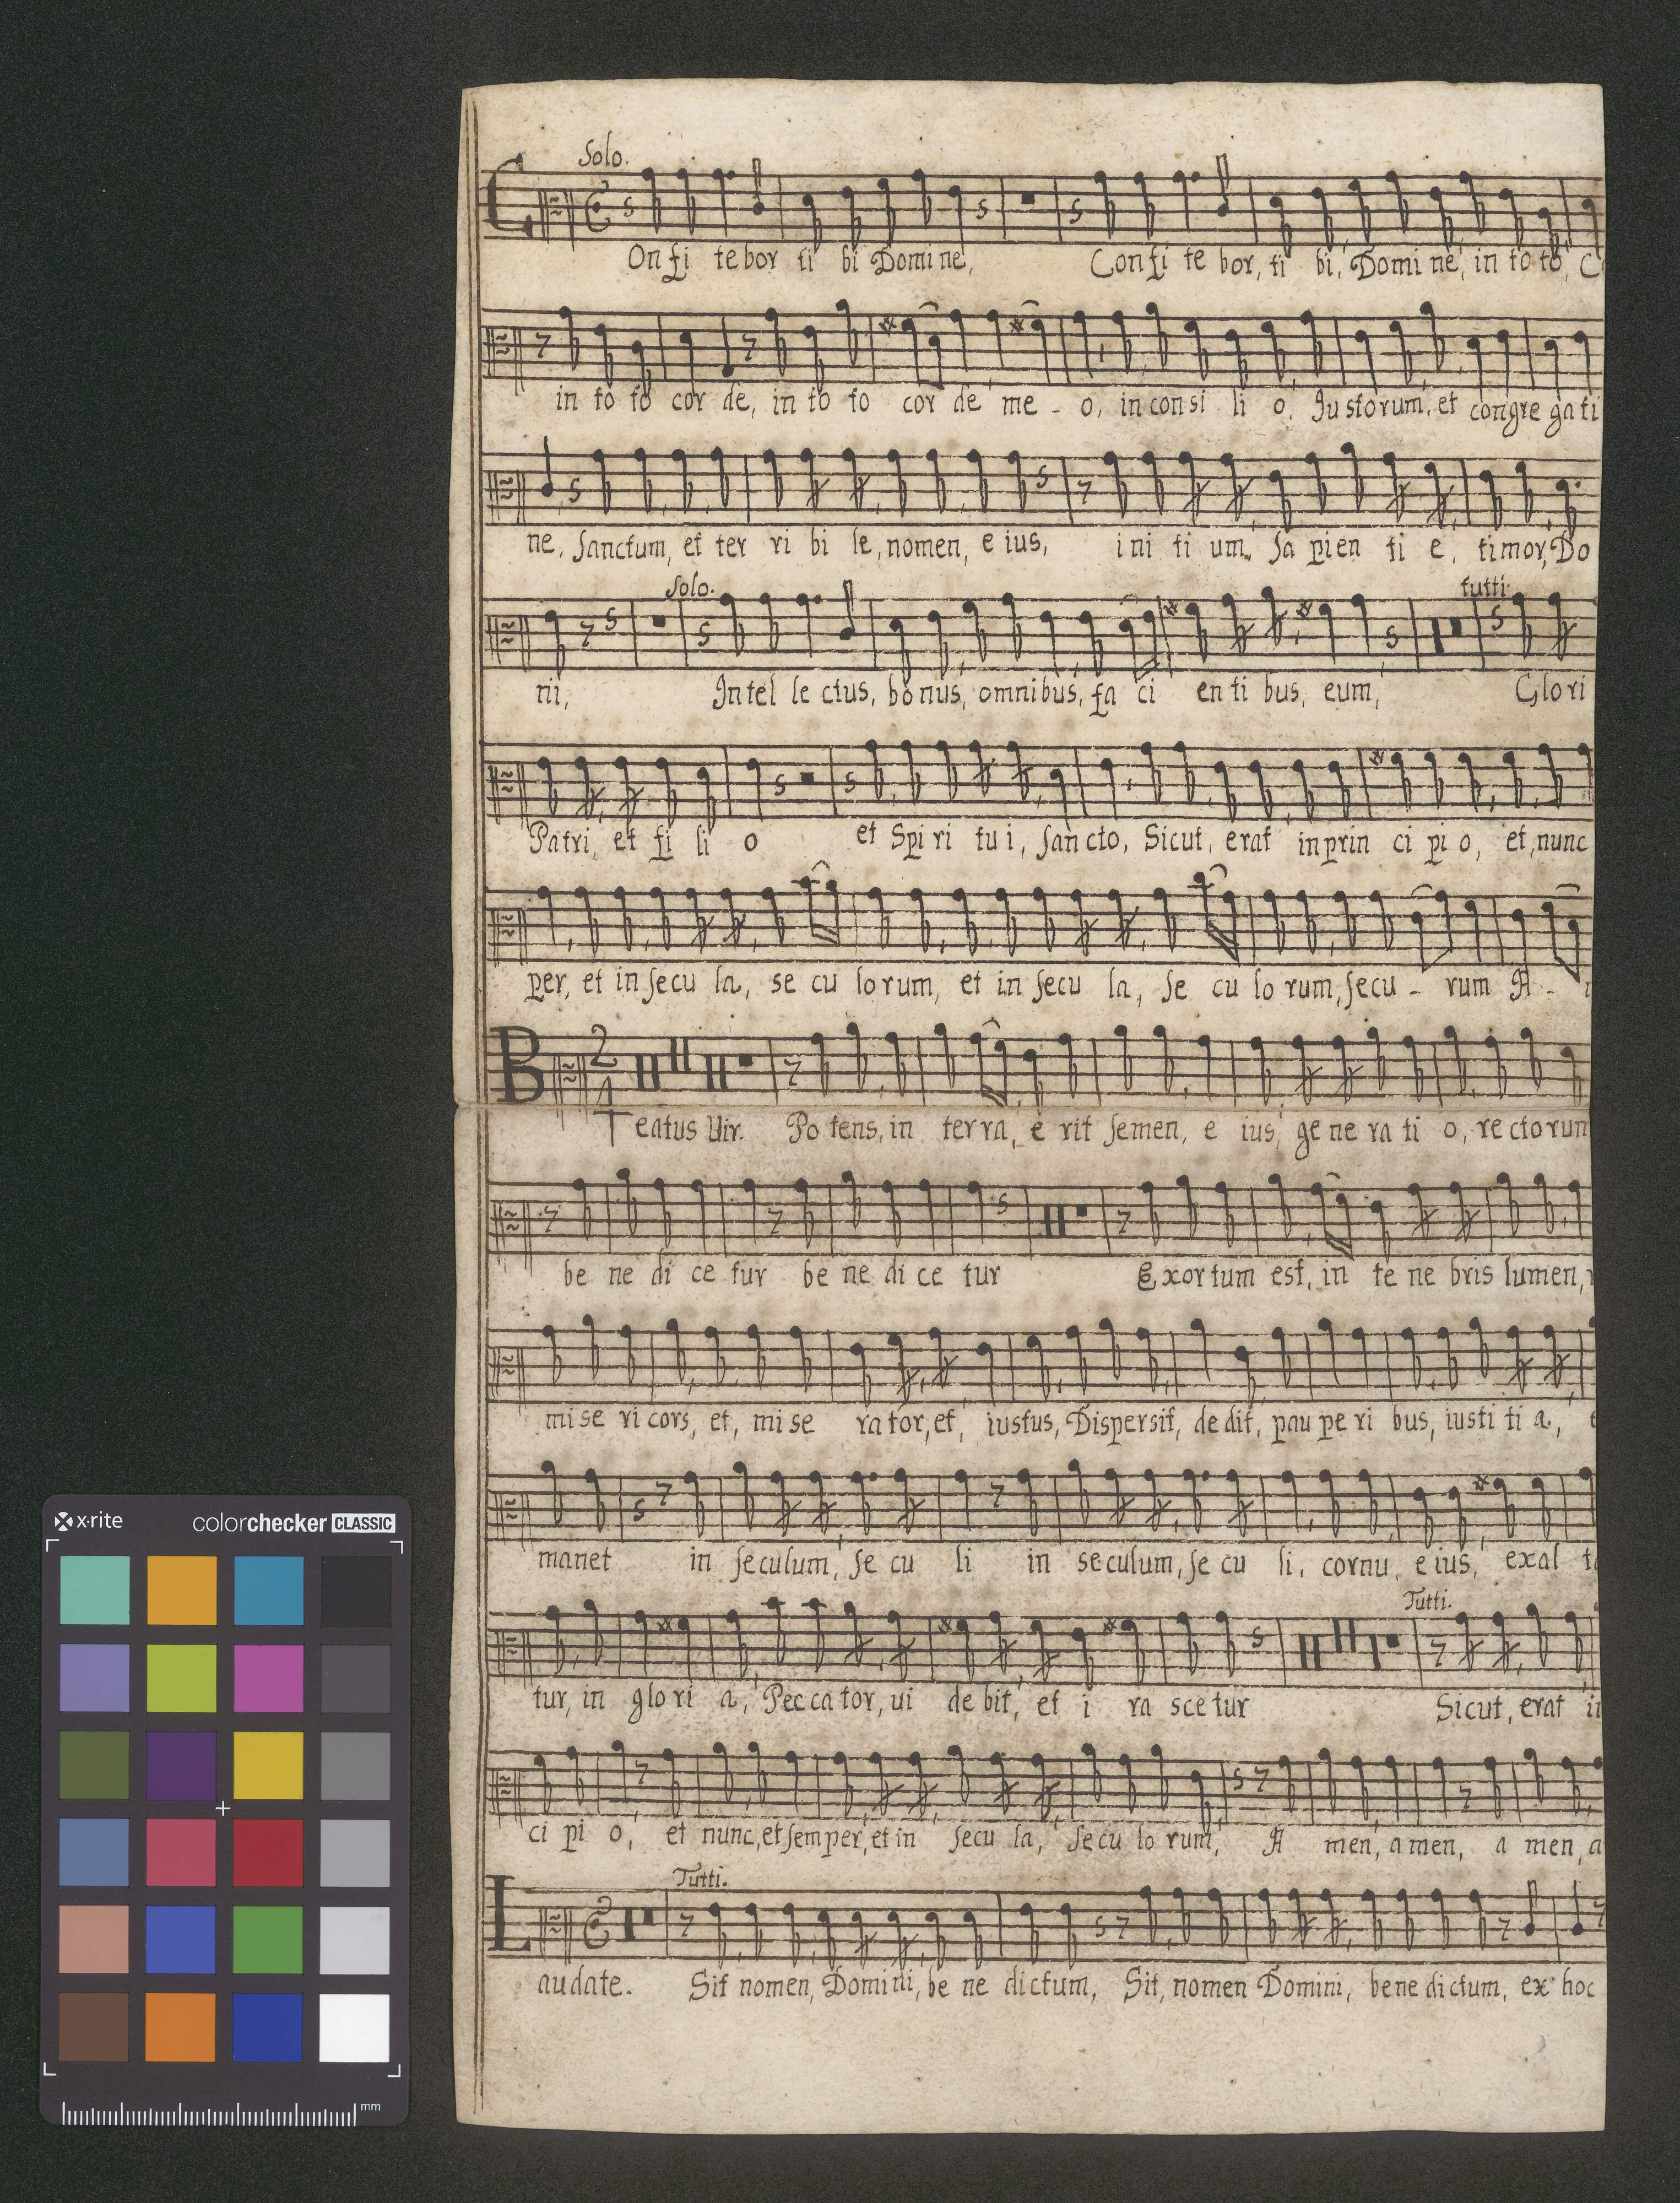 Solo.
COn fi te bor ti bi Domi ne, Con fi te bor, ti bi, Domi ne, in to to, C
in to to cor de, in to to cor de me - o, in con si li o, Ju storum, et congre ga ti
ne, Sanctum, et ter ri bi le, nomen, e ius, ini ti um, Sa pien ti e, timor, Do
Solo. tutti
ni, Intel le ctus, bo nus, omnibus, fa ci en ti bus, eum, Glori
Patri, et fi li o et Spi ri tu i, San cto, Sicut, erat in prin ci pi o, et, nunc
per, et in Secu la, se cu lo rum, et in Secu la, Se cu lo rum, Secu - rum A -
2
4
Beatus Vir. Po tens, in ter ra, e rit Semen, e ius, ge ne ra ti o, re ctorun
be ne di ce tur be ne di ce tur Exor tum est, in te ne bris lumen,
mise ri cors, et, mi se ra tor, et, iustus, Dispersit, de dit, pau pe ri bus, iusti ti a, e
manet in Seculum, Se cu li in seculum, Se cu li, cornu, e ius, exal ta
Tutti.
tur, in glo ri a, Pec ca tor, ui de bit, et i ra sce tur Sicut, erat in
ci pi o, et nunc, et Semper, et in Secu la, Se cu lo rum, A men, a men, a men, a
Tutti.
Laudate. Sit nomen, Domini, be ne dictum, Sit, nomen Domini, bene dictum, ex hoc
x·rite colorchecker CLASSIC
mm